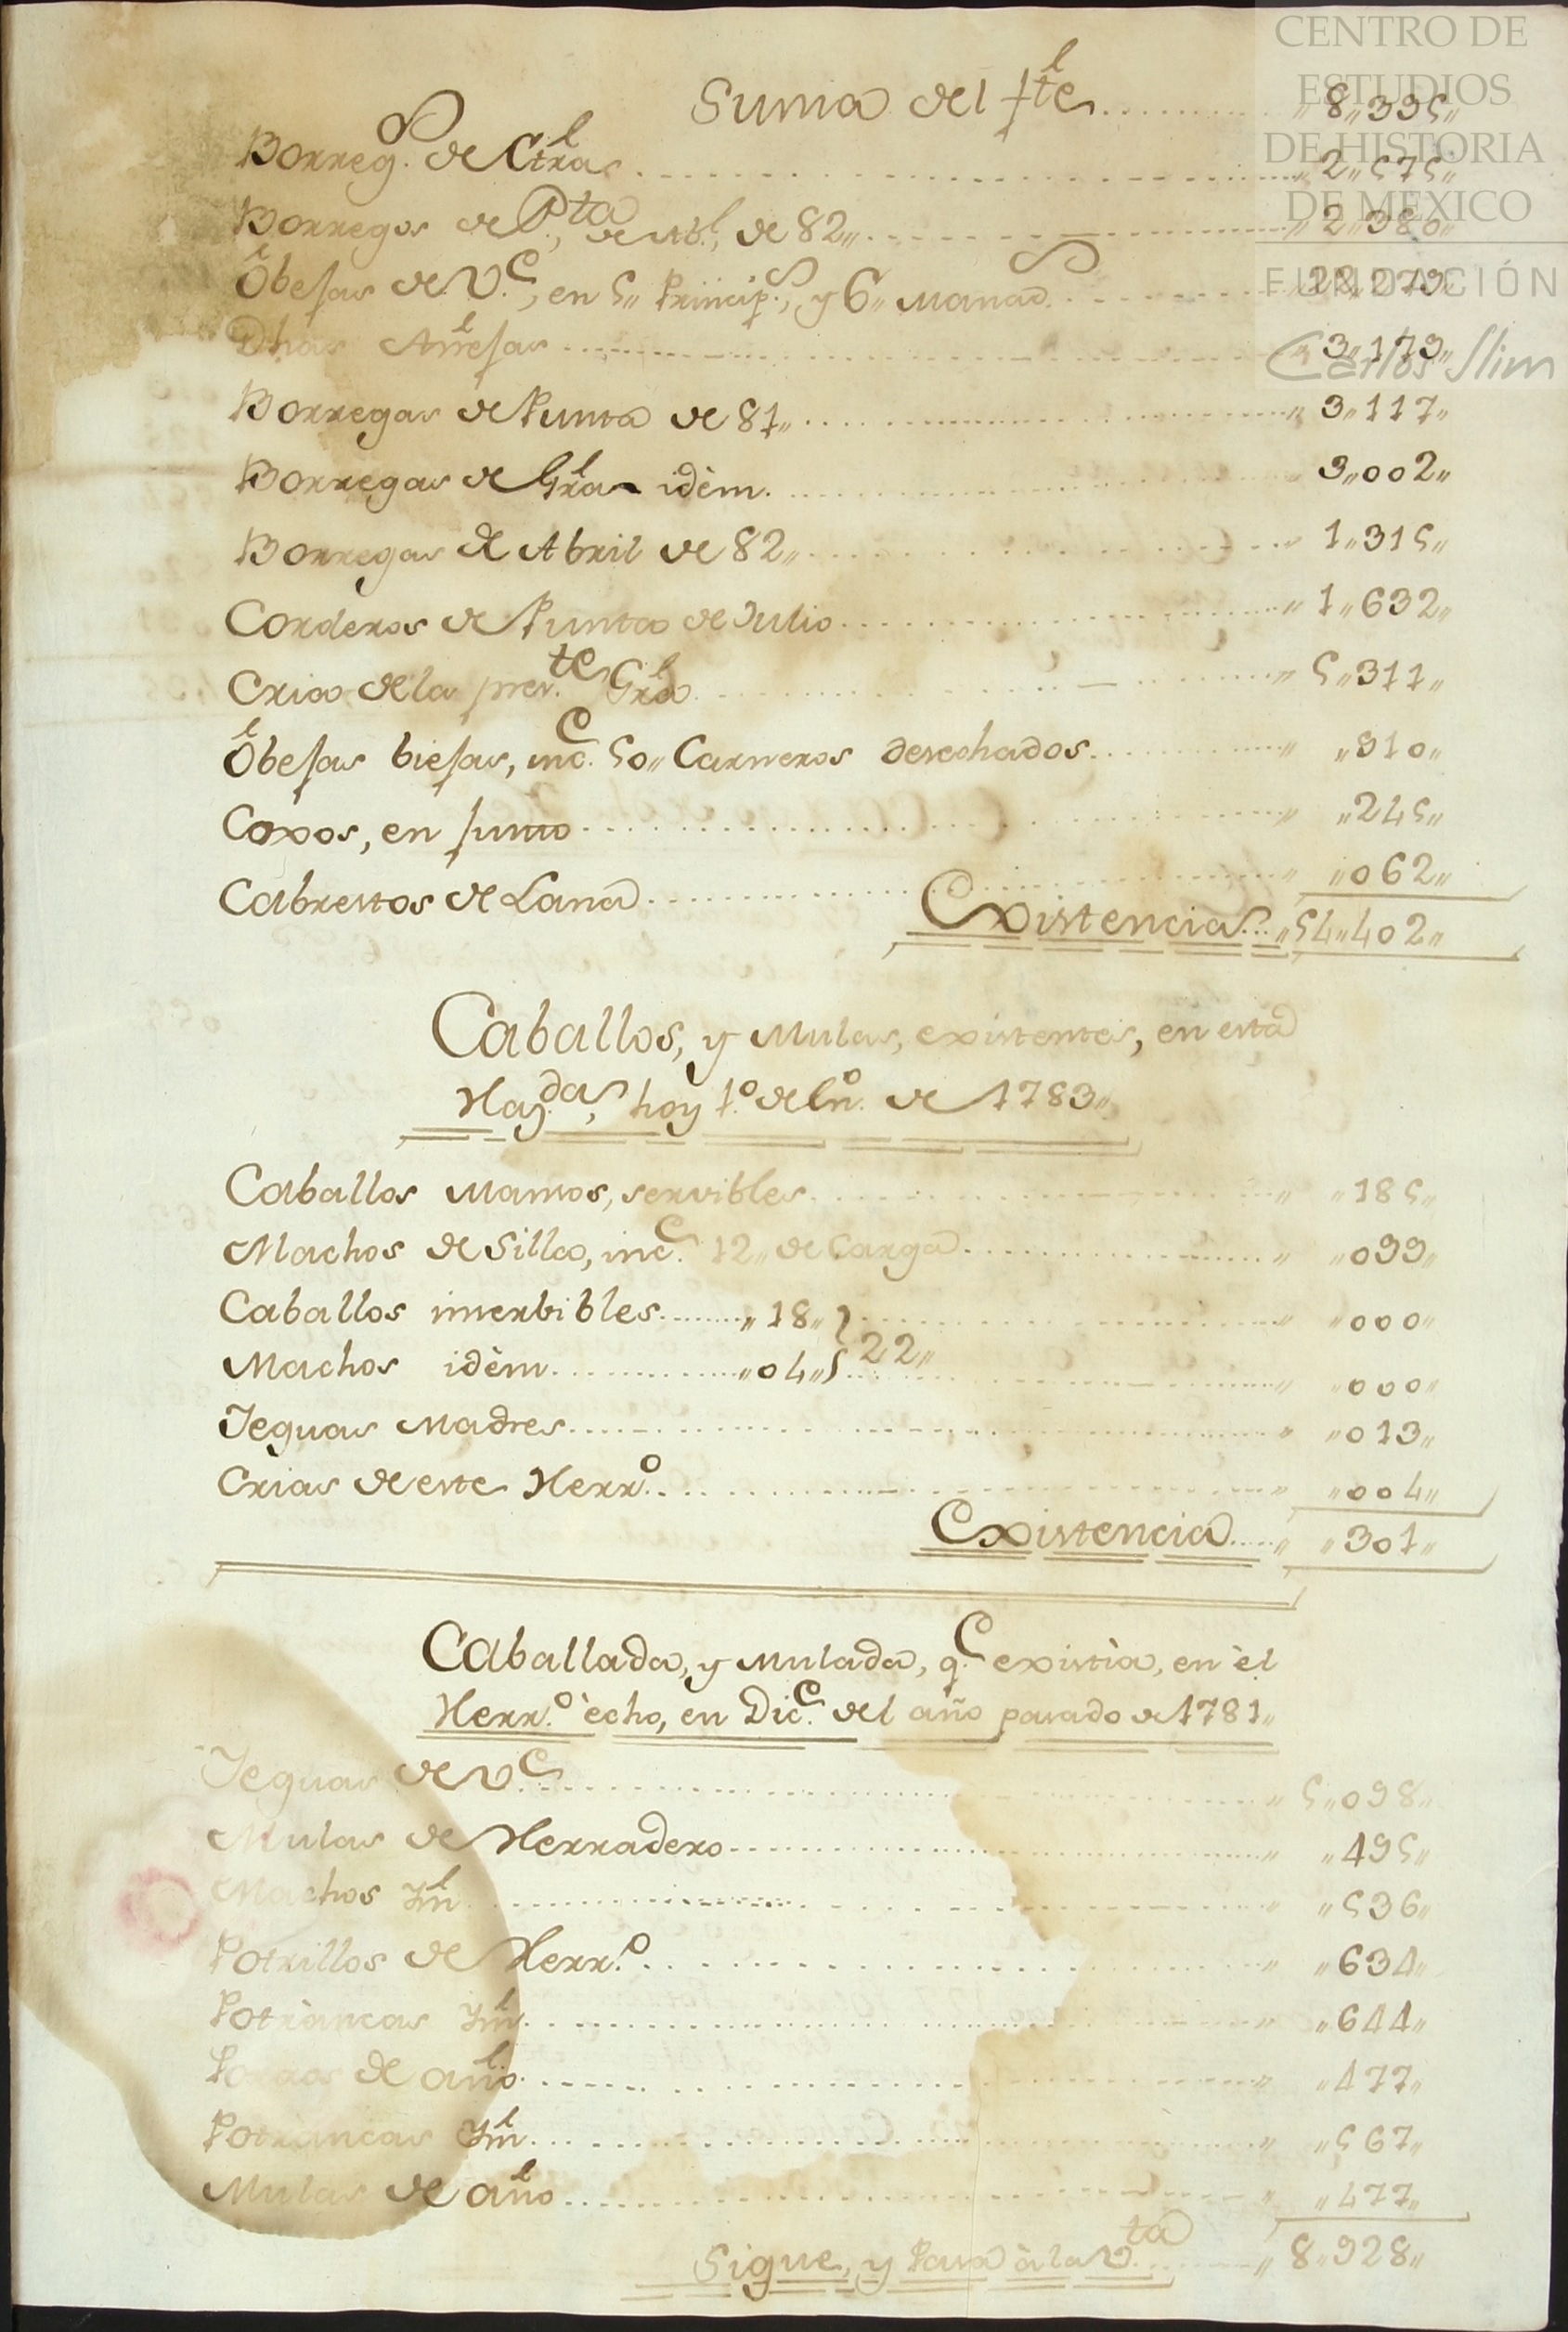 Suma del fte.l 8,,395,,
Borreg.s de Ctras.l 2,,575,,
Borregos de P.ta, de Ab.l, de 82,, 2,,380,,
Obejas de V.e, en 5,, Princip.s, y 6,, Manad.s 22,,279,,
Dhas Añejas 3,,179,,
Borregas de Punta de 81,, 3,,117,,
Borregas de Gral idèm. 3,,002,,
Borregas de Abril de 82,, 1,,315,,
Corderos de Punta de Julio 1,,632,,
Cria de la pres.te Gral 5,,311,,
Obejas biejas, inc.e 50,, Carneros desechados ,,910,,
Coxos, en junto ,,245,,
Cabrestos de Lana ,,062,,
Existencias ,,54,,402,,
Caballos, y Mulas, existentes, en esta
Haz.das, hoy 1.o de En.o de 1783,,
Caballos Mansos, servibles ,,185,,
Machos de Silla, inc.e 12,, de Carga ,,099,,
Caballos inserbibles ,,18,, ,,000,,
Machos idèm ,,04,, 22,, ,,000,,
Yeguas Madres ,,013,,
Crias de este Herr.o ,,004,,
Existencia ,,301,,
Caballada, y Mulada, q.e existìa, en èl
Herr.o ècho, en Dic.e del año pasado de 1781,,
Yeguas de V.e 5,,098,,
Mulas de Herradero ,,495,,
Machos Ym.l ,,536,,
Potrillos de Herr.o ,,634,,
Potrancas Ym.l ,,644,,
Potros de año ,,477,,
Potrancas Ym.l ,,567,,
Mulas de año ,,477,,
Sigue, y Pasa à la V.ta ,,8,,928,,
CENTRO DE
ESTUDIOS
DE HISTORIA
DE MÉXICO
FUNDACIÓN
Carlos Slim